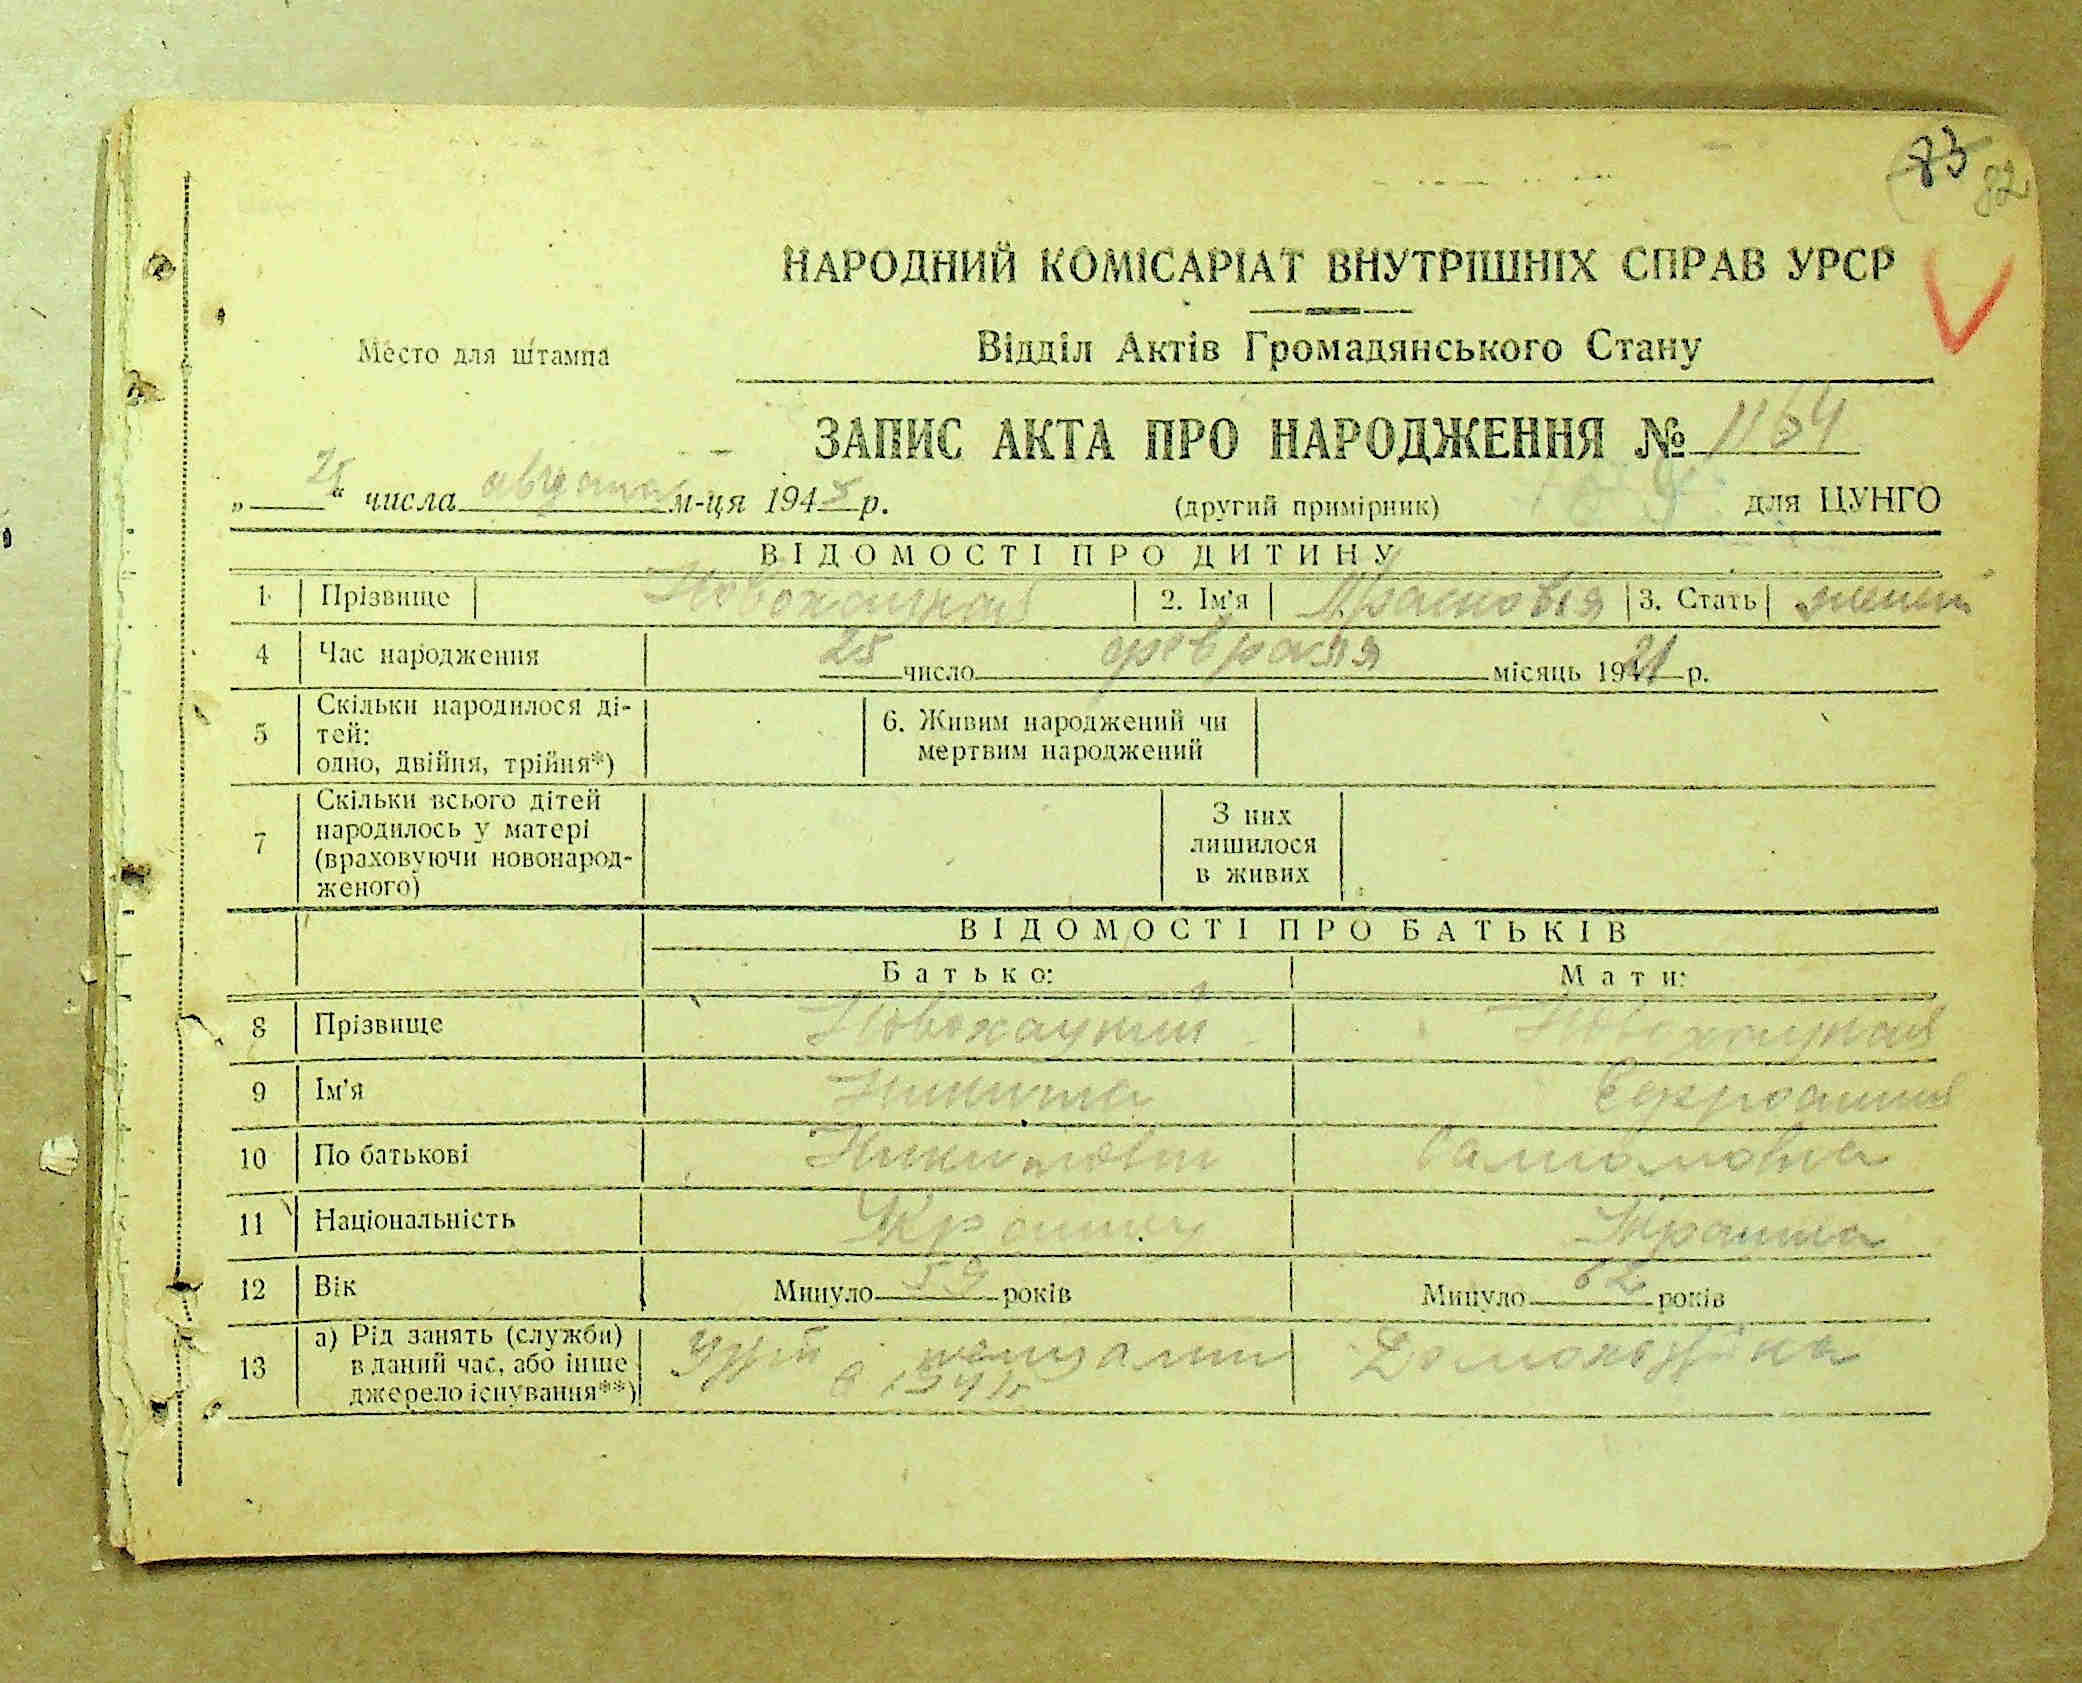 83
82
НАРОДНИЙ КОМІСАРІАТ ВНУТРІШНІХ СПРАВ УРСР
Место для штампа
Відділ Актів Громадянського Стану
ЗАПИС АКТА ПРО НАРОДЖЕННЯ № 1164
„ 25 “ числа августа м-ця 1945 р. (другий примірник) для ЦУНГО
ВІДОМОСТІ ПРО ДИТИНУ
1 Прізвище Новохацкая 2. Ім'я Прасковья 3. Стать женск
4 Час народження 25 число февраля місяць 1921 р.
5 Скільки народилося ді-
тей:
одно, двійня, трійня*)
6. Живим народжений чи
мертвим народжений
7 Скільки всього дітей
народилось у матері
(враховуючи новонарод-
женого)
З них
лишилося
в живих
ВІДОМОСТІ ПРО БАТЬКІВ
Батько: Мати:
8 Прізвище Новохацкий Новохацкая
9 Ім'я Никита
10 По батькові
11 Національність Украинец Украинка
12 Вік Минуло 59 років Минуло 62 років
13 а) Рід занять (служби)
в даний час, або інше
джерело існування**)
Домохозяйка